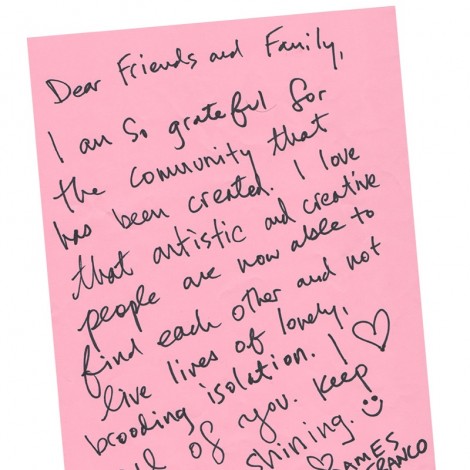 Dear Friends and Family,
I am so grateful for
the community that
has been created. I love
that artistic and creative
people are now able to
find each other and not
live lives of lonely,
brooding isolation. I ♡
all of you. Keep
shining. ☺
♡ JAMES
FRANCO